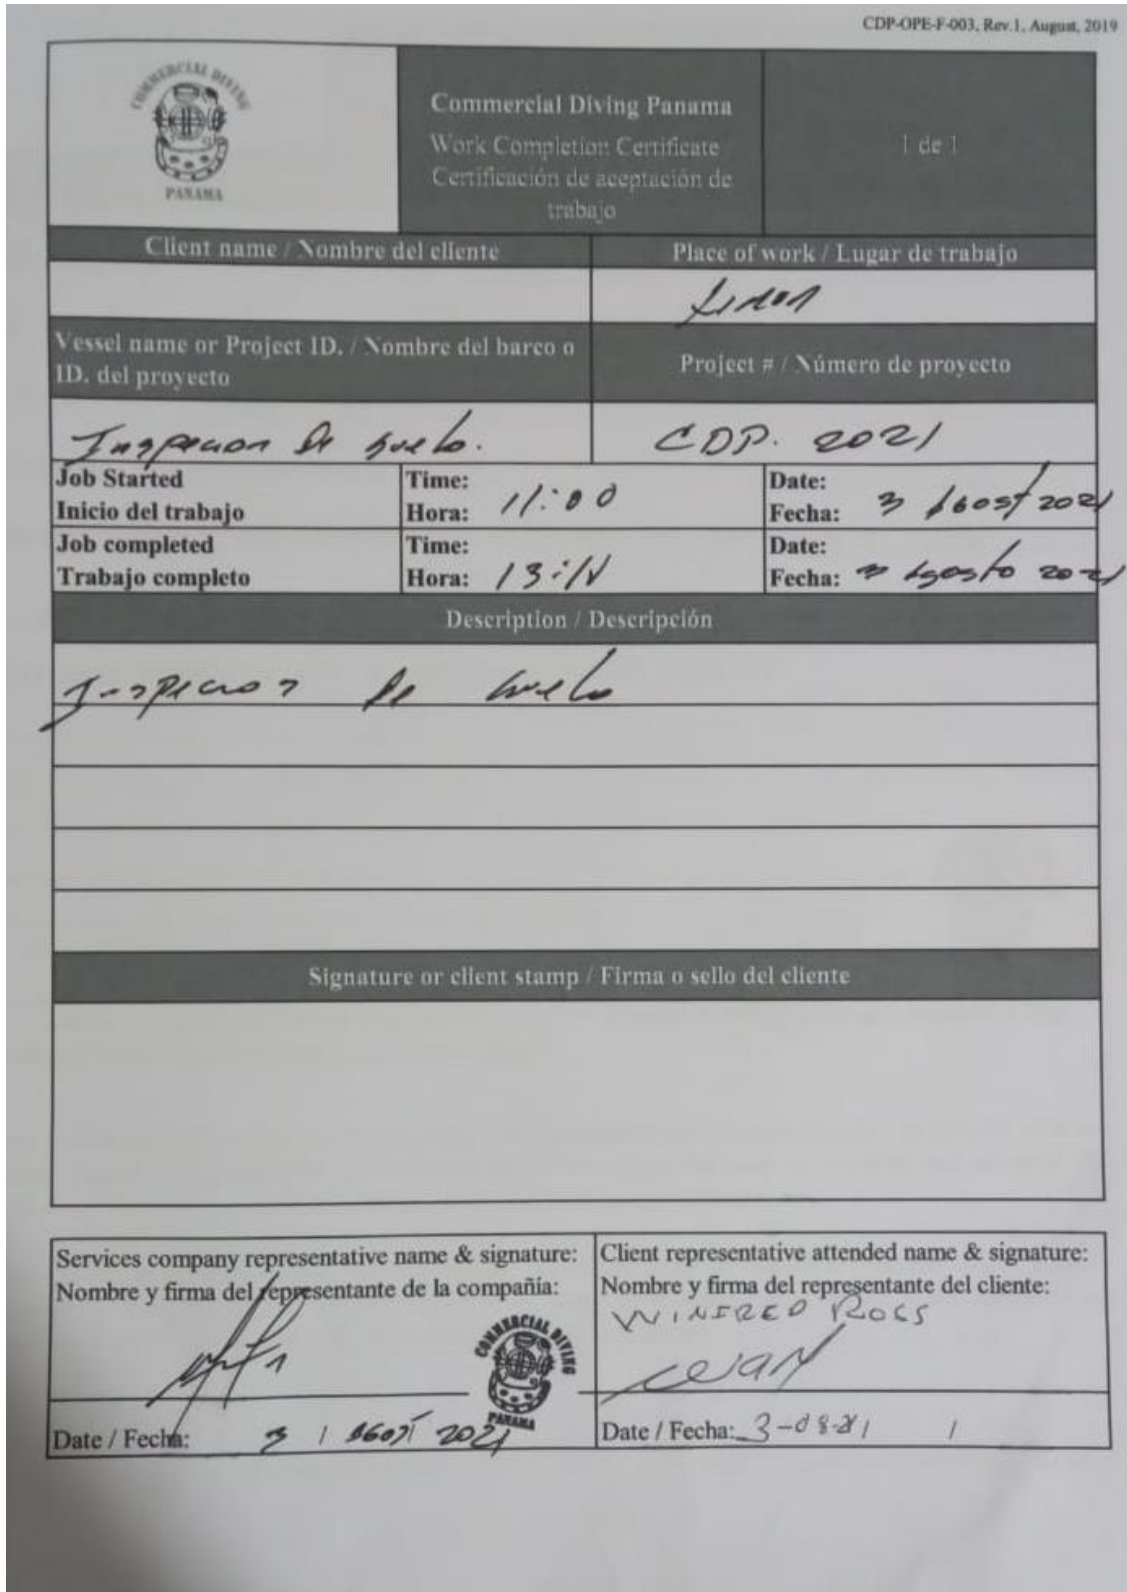 CDP-OPE-F-003, Rev.1, August, 2019
COMMERCIAL DIVING
PANAMA
Commercial Diving Panama
Work Completion Certificate
Certificación de aceptación de
trabajo
1 de 1
Client name / Nombre del cliente
Place of work / Lugar de trabajo
Vessel name or Project ID. / Nombre del barco o
ID. del proyecto
Project # / Número de proyecto
Inspecion de suelo.
CDP. 2021
Job Started
Inicio del trabajo
Time:
Hora: 11:00
Date:
Fecha: 3 Agost 2021
Job completed
Trabajo completo
Time:
Hora:
Date:
Fecha: 3 Agosto 2021
Description / Descripción
Inspecion de suelo
Signature or client stamp / Firma o sello del cliente
Services company representative name & signature:
Nombre y firma del representante de la compañía:
COMMERCIAL DIVING
PANAMA
Date / Fecha: 3 / Agost 2021
Client representative attended name & signature:
Nombre y firma del representante del cliente:
WINFRED ROSS
Date / Fecha: 3-08-21 /